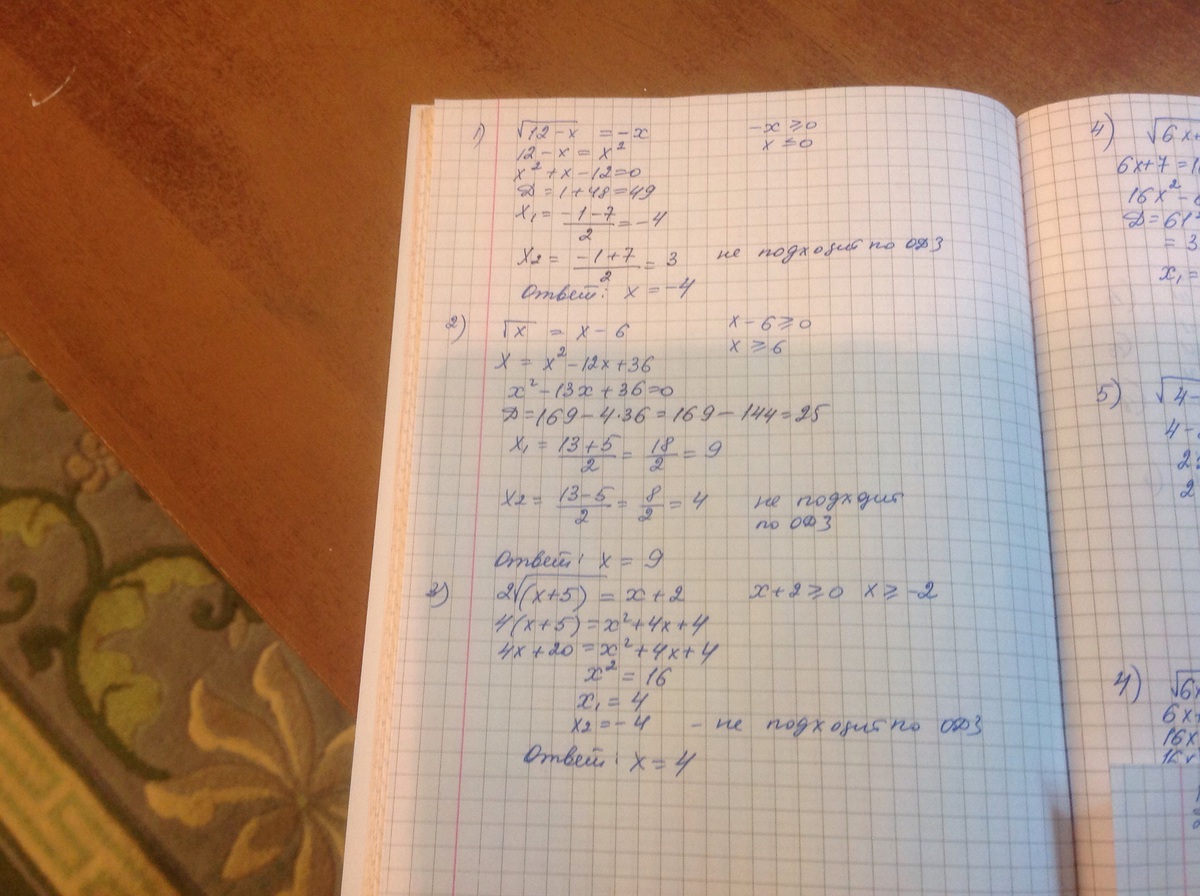 1) √12-x = -x -x ≥ 0
12-x = x² x ≤ 0
x²+x-12=0
Д=1+48=49
x₁ = (-1-7)/2 = -4
x₂ = (-1+7)/2 = 3 не подходит по ОДЗ
Ответ: x = -4
2) √x = x-6 x-6 ≥ 0
x = x²-12x+36 x ≥ 6
x²-13x+36=0
Д=169-4·36=169-144=25
x₁ = (13+5)/2 = 18/2 = 9
x₂ = (13-5)/2 = 8/2 = 4 не подходит
по ОДЗ
Ответ: x = 9
3) 2√(x+5) = x+2 x+2 ≥ 0 x ≥ -2
4(x+5)=x²+4x+4
4x+20=x²+4x+4
x² = 16
x₁ = 4
x₂ = -4 - не подходит по ОДЗ
Ответ: x = 4
4) √6x+
6x+7=1
16x²-
Д=61
= 3
x₁ =
5) √4-
4-
2
2
4) √6x
6x+
16x